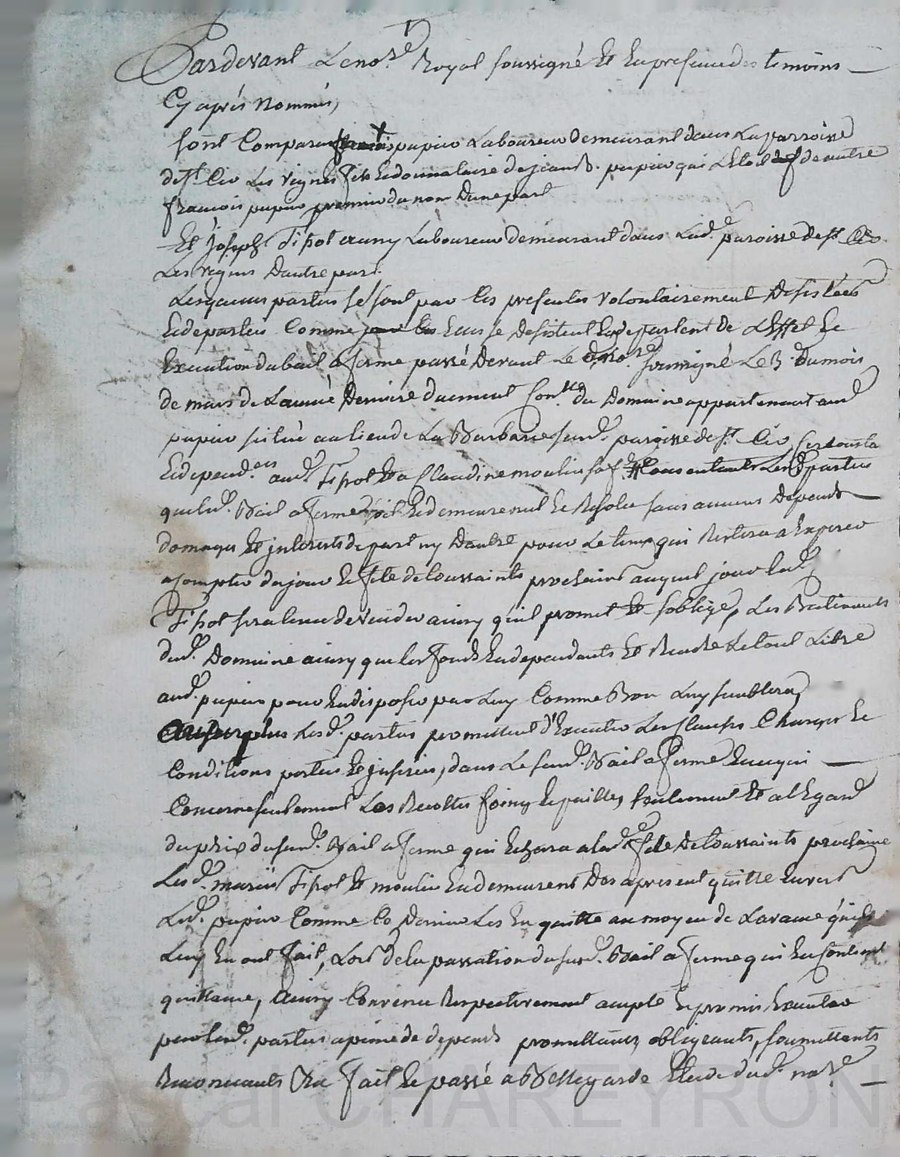 Pardevant Le no.re Royal soussigné Et En presence des temoins
Cy aprés nommés,
sont Comparu françois papier Laboureur demeurant dans La parroisse
de st. Cir Les vignes fils Et donnataire de jean B. papier qui Letoit de autre
francois papier premier du nom Dune part
Et joseph Tipot aussy Laboureur demeurant dans Lad.e paroisse de st. Cir
Les vignes Dautre part.
Lesquelles parties se sont par Ces presentes volontairement Desistées
Et departies Comme Elles se desistent Et departent de L'Effet Et
Execution du bail a ferme passé Devant Le no.re soussigné Le 3. du mois
de mars de L'année Derniere duement Con.lé du Domaine appartenant aud.
papier situé au lieu de La Barbare susd. paroisse de st. Cir,
Et dependces aud. Tipot Et a Claudine moulin sa f. parties
que led. Bail a ferme soit Et demeure nul Et Resolu sans aucuns Depends
domages Et interests de part ny Dautre pour Le temps qui Restera a Expirer
a Compter du jour Et fete de toussaints prochain auquel jour led.
Tipot sera tenu de vuider ainsy qu'il promet Et s'oblige, Les Batiments
dud. Domaine ainsy que les fonds En dependants Et Rendre Le tout Libre
aud. papier pour En disposer par Luy Comme Bon Luy semblera,
Au surplus Lesd. parties promettent d'Executer Les Clauses Charges Et
Conditions portées Et inserées, dans Le susd. Bail a ferme En ce qui
Concerne seulement Les Recoltes foins Et pailles, seulement Et a L'Egard
du prix du susd. Bail a ferme qui Echera a lad. fete De toussaints prochaine
Lesd. mariés Tipot Et moulin En demeurent Des a present quitte Envers
Led. papier Comme Ce Dernier Les En quitte au moyen de Lavance qu'ils
Luy En ont fait, Lors de La passation du susd. Bail a ferme qui En Contient
quittance, Ainsy Convenu Respectivement accepté Et promis Executer
par lesd. parties a peine de depends promettants, obligeants, soumettants
Renonceants &a fait Et passé a Bellegarde Etude dud. no.re
Pascal CHAREYRON